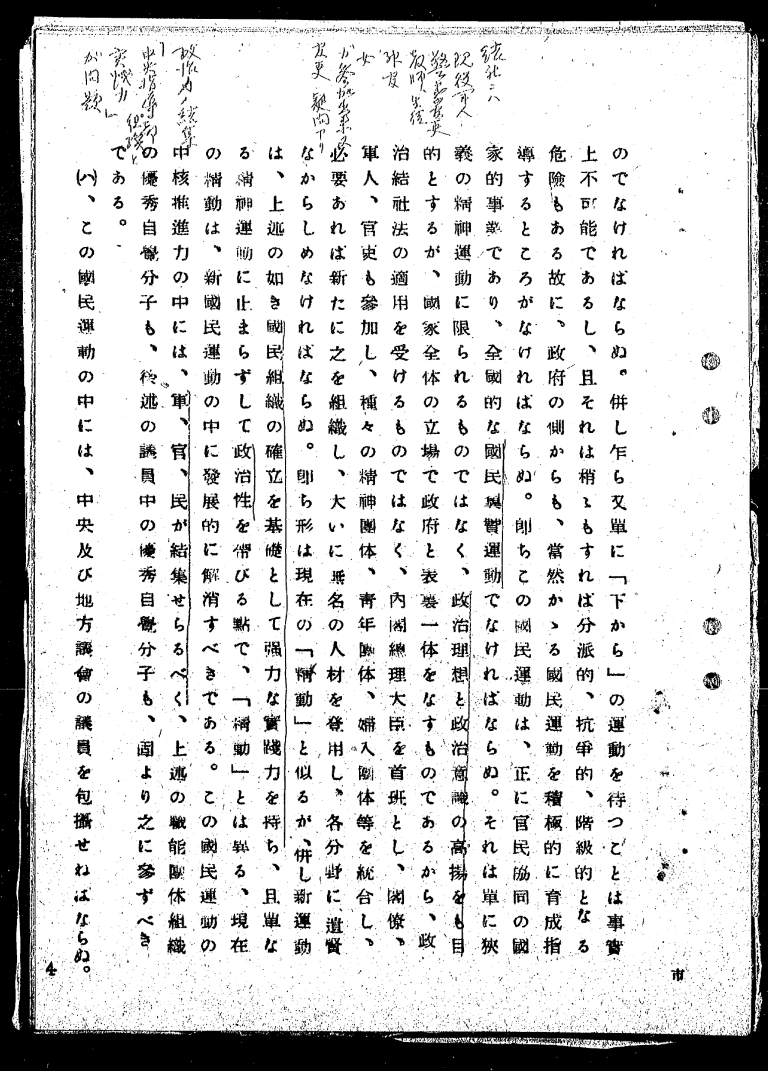 結社ニハ
現役軍人
警察官吏
教師生徒
女
が参加出来ヌ
官吏 疑問アリ
政治力ノ結集
中央指導部
組織と
実践力」
が問題
のでなければならぬ。併し乍ら又單に「下から」の運動を待つことは事實
上不可能であるし、且それは稍〻もすれば分派的、抗爭的、階級的となる
危險もある故に、政府の側からも、當然かゝる國民運動を積極的に育成指
導するところがなければならぬ。卽ちこの國民運動は、正に官民協同の國
家的事業であり、全國的な國民翼賛運動でなければならぬ。それは單に狹
義の精神運動に限られるものではなく、政治理想と政治意識の高揚をも目
的とするが、國家全体の立場で政府と表裏一体をなすものであるから、政
治結社法の適用を受けるものではなく、內閣總理大臣を首班とし、閣僚、
軍人、官吏も參加し、種々の精神團体、靑年團体、婦人團体等を統合し、
必要あれば新たに之を組織し、大いに無名の人材を登用し、各分野に遺賢
なからしめなければならぬ。卽ち形は現在の「精動」と似るが、併し新運動
は、上述の如き國民組織の確立を基礎として强力な實踐力を持ち、且單な
る精神運動に止まらずして政治性を帶びる點で、「精動」とは異る、現在
の精動は、新國民運動の中に發展的に解消すべきである。この國民運動の
中核推進力の中には、軍、官、民が結集せらるべく、上述の職能團体組織
の優秀自覺分子も、後述の議員中の優秀自覺分子も、固より之に參ずべき
である。
㈥、この國民運動の中には、中央及び地方議會の議員を包攝せねばならぬ。
市
4